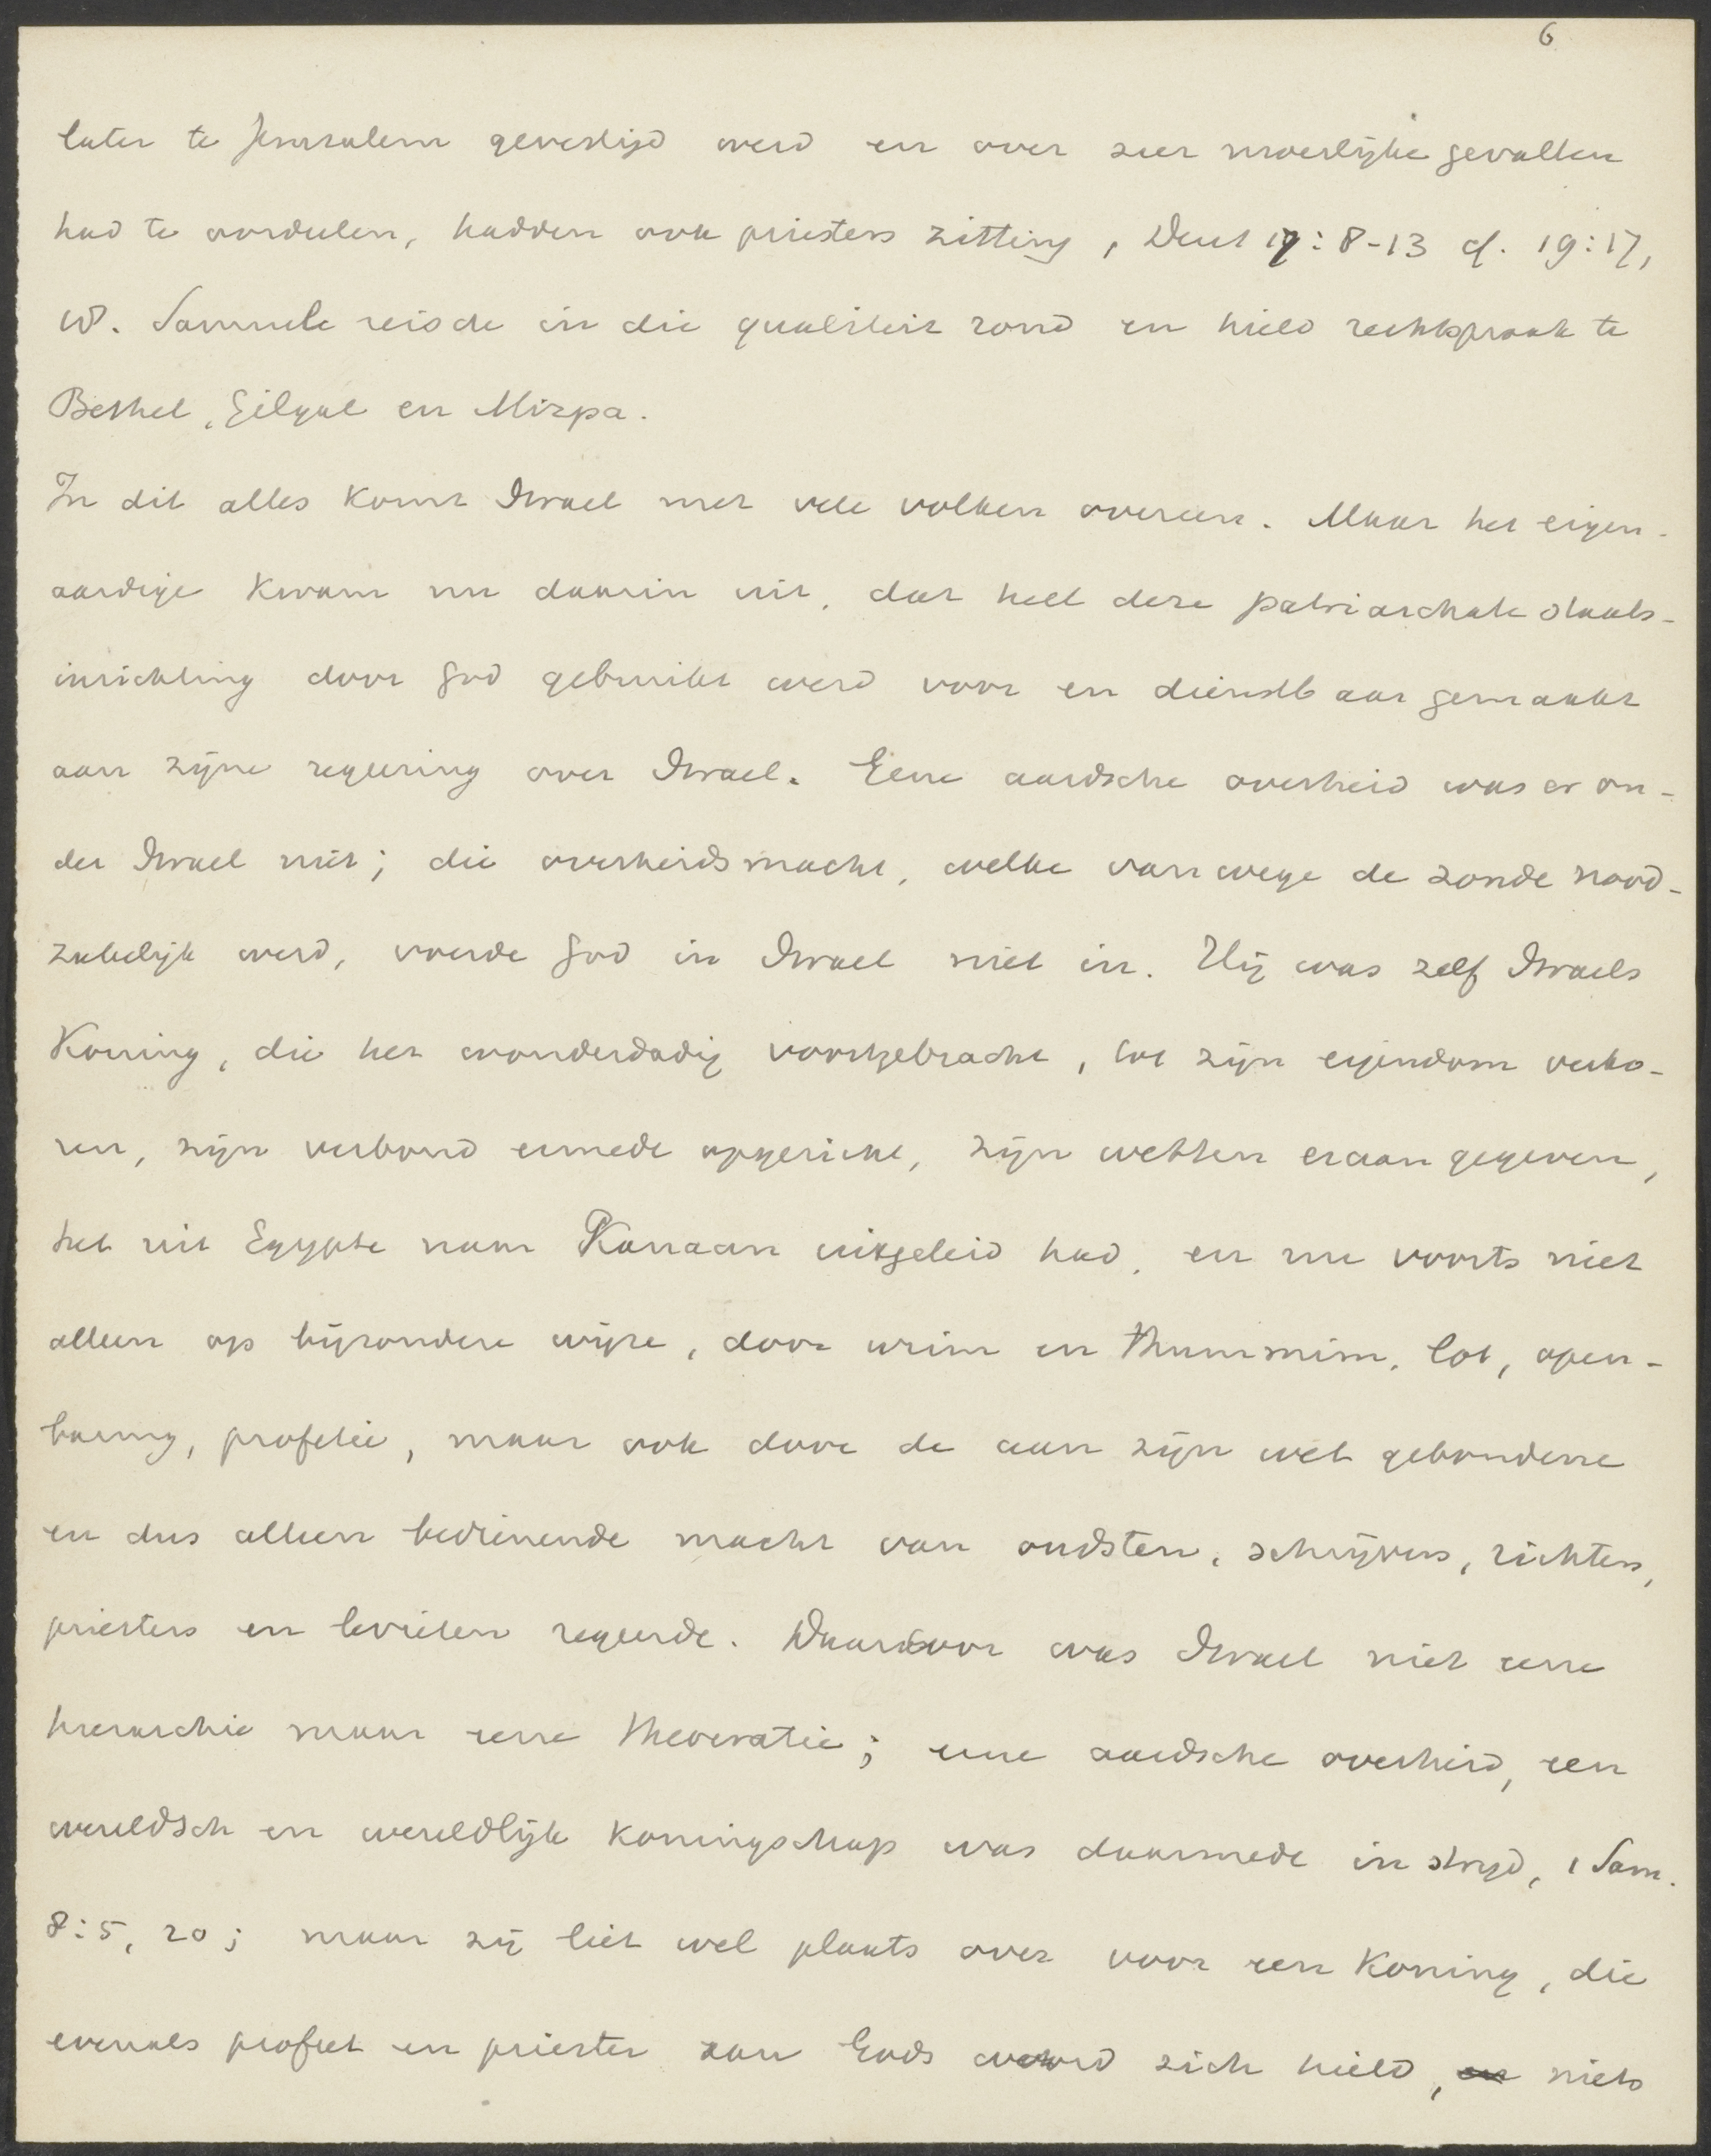 6
later te Jeruzalem gevestigd werd en over zeer moeilijke gevallen
had te oordeelen, hadden ook priesters zitting, Deut 17:8-13 cf. 19:17,
18. Samuel reisde in die qualiteit rond en hield rechtspraak te
Bethel, Gilgal en Mizpa.
In dit alles komt Israel met vele volken overeen. Maar het eigen-
aardige kwam nu daarin uit, dat heel deze patriarchale staats-
inrichting door God gebruikt werd voor en dienstbaar gemaakt
aan zijne regeering over Israel. Eene aardsche overheid was er on-
der Israel niet; die overheidsmacht, welke vanwege de zonde nood-
zakelijk werd, voerde God in Israel niet in. Hij was zelf Israels
Koning, die het wonderdadig voortgebracht, tot zijn eigendom verko-
ren, zijn verbond ermede opgericht, zijn wetten eraan gegeven,
het uit Egypte naar Kanaan uitgeleid had, en nu voorts niet
alleen op bijzondere wijze, door urim en thummim, lot, open-
baring, profetie, maar ook door de aan zijn wet gebondene
en dus alleen bedienende macht van oudsten, schrijvers, richters,
priesters en levieten regeerde. Daardoor was Israel niet eene
hierarchie maar eene theocratie; eene aardsche overheid, een
wereldsch en wereldlijk koningschap was daarmede in strijd, 1 Sam.
8:5, 20; maar zij liet wel plaats over voor een Koning, die
evenals profeet en priester aan Gods woord zich hield, niets